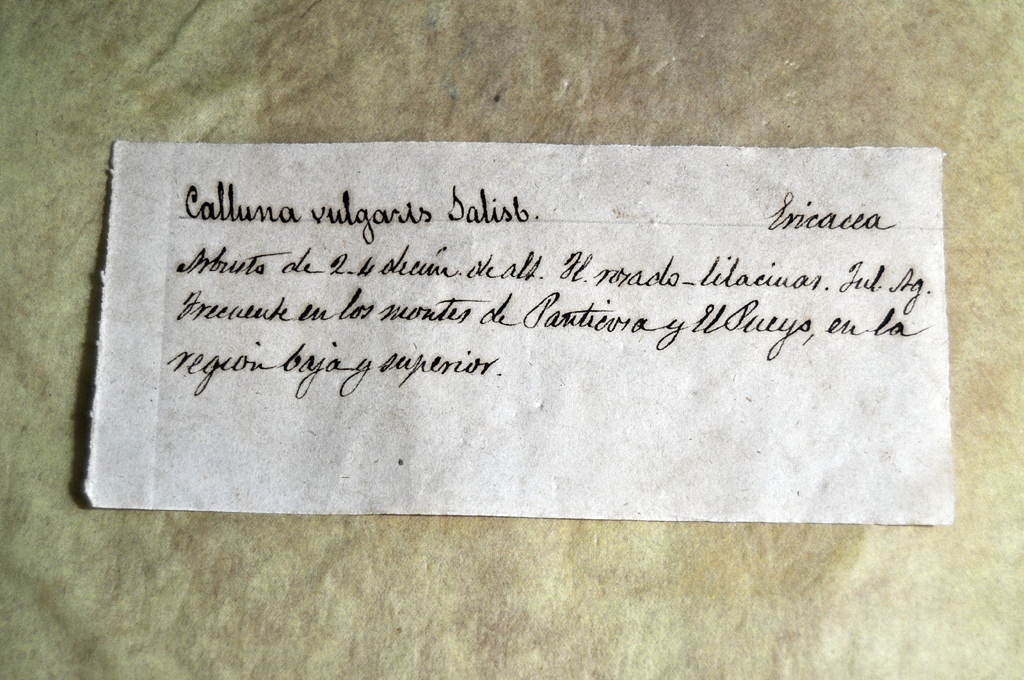 Calluna vulgaris Salisb. Ericacea
Arbusto de 2-4 decím. de alt. Fl. rosado-lilacinas. Jul. Ag.
Frecuente en los montes de Panticosa y El Pueyo, en la
región baja y superior.